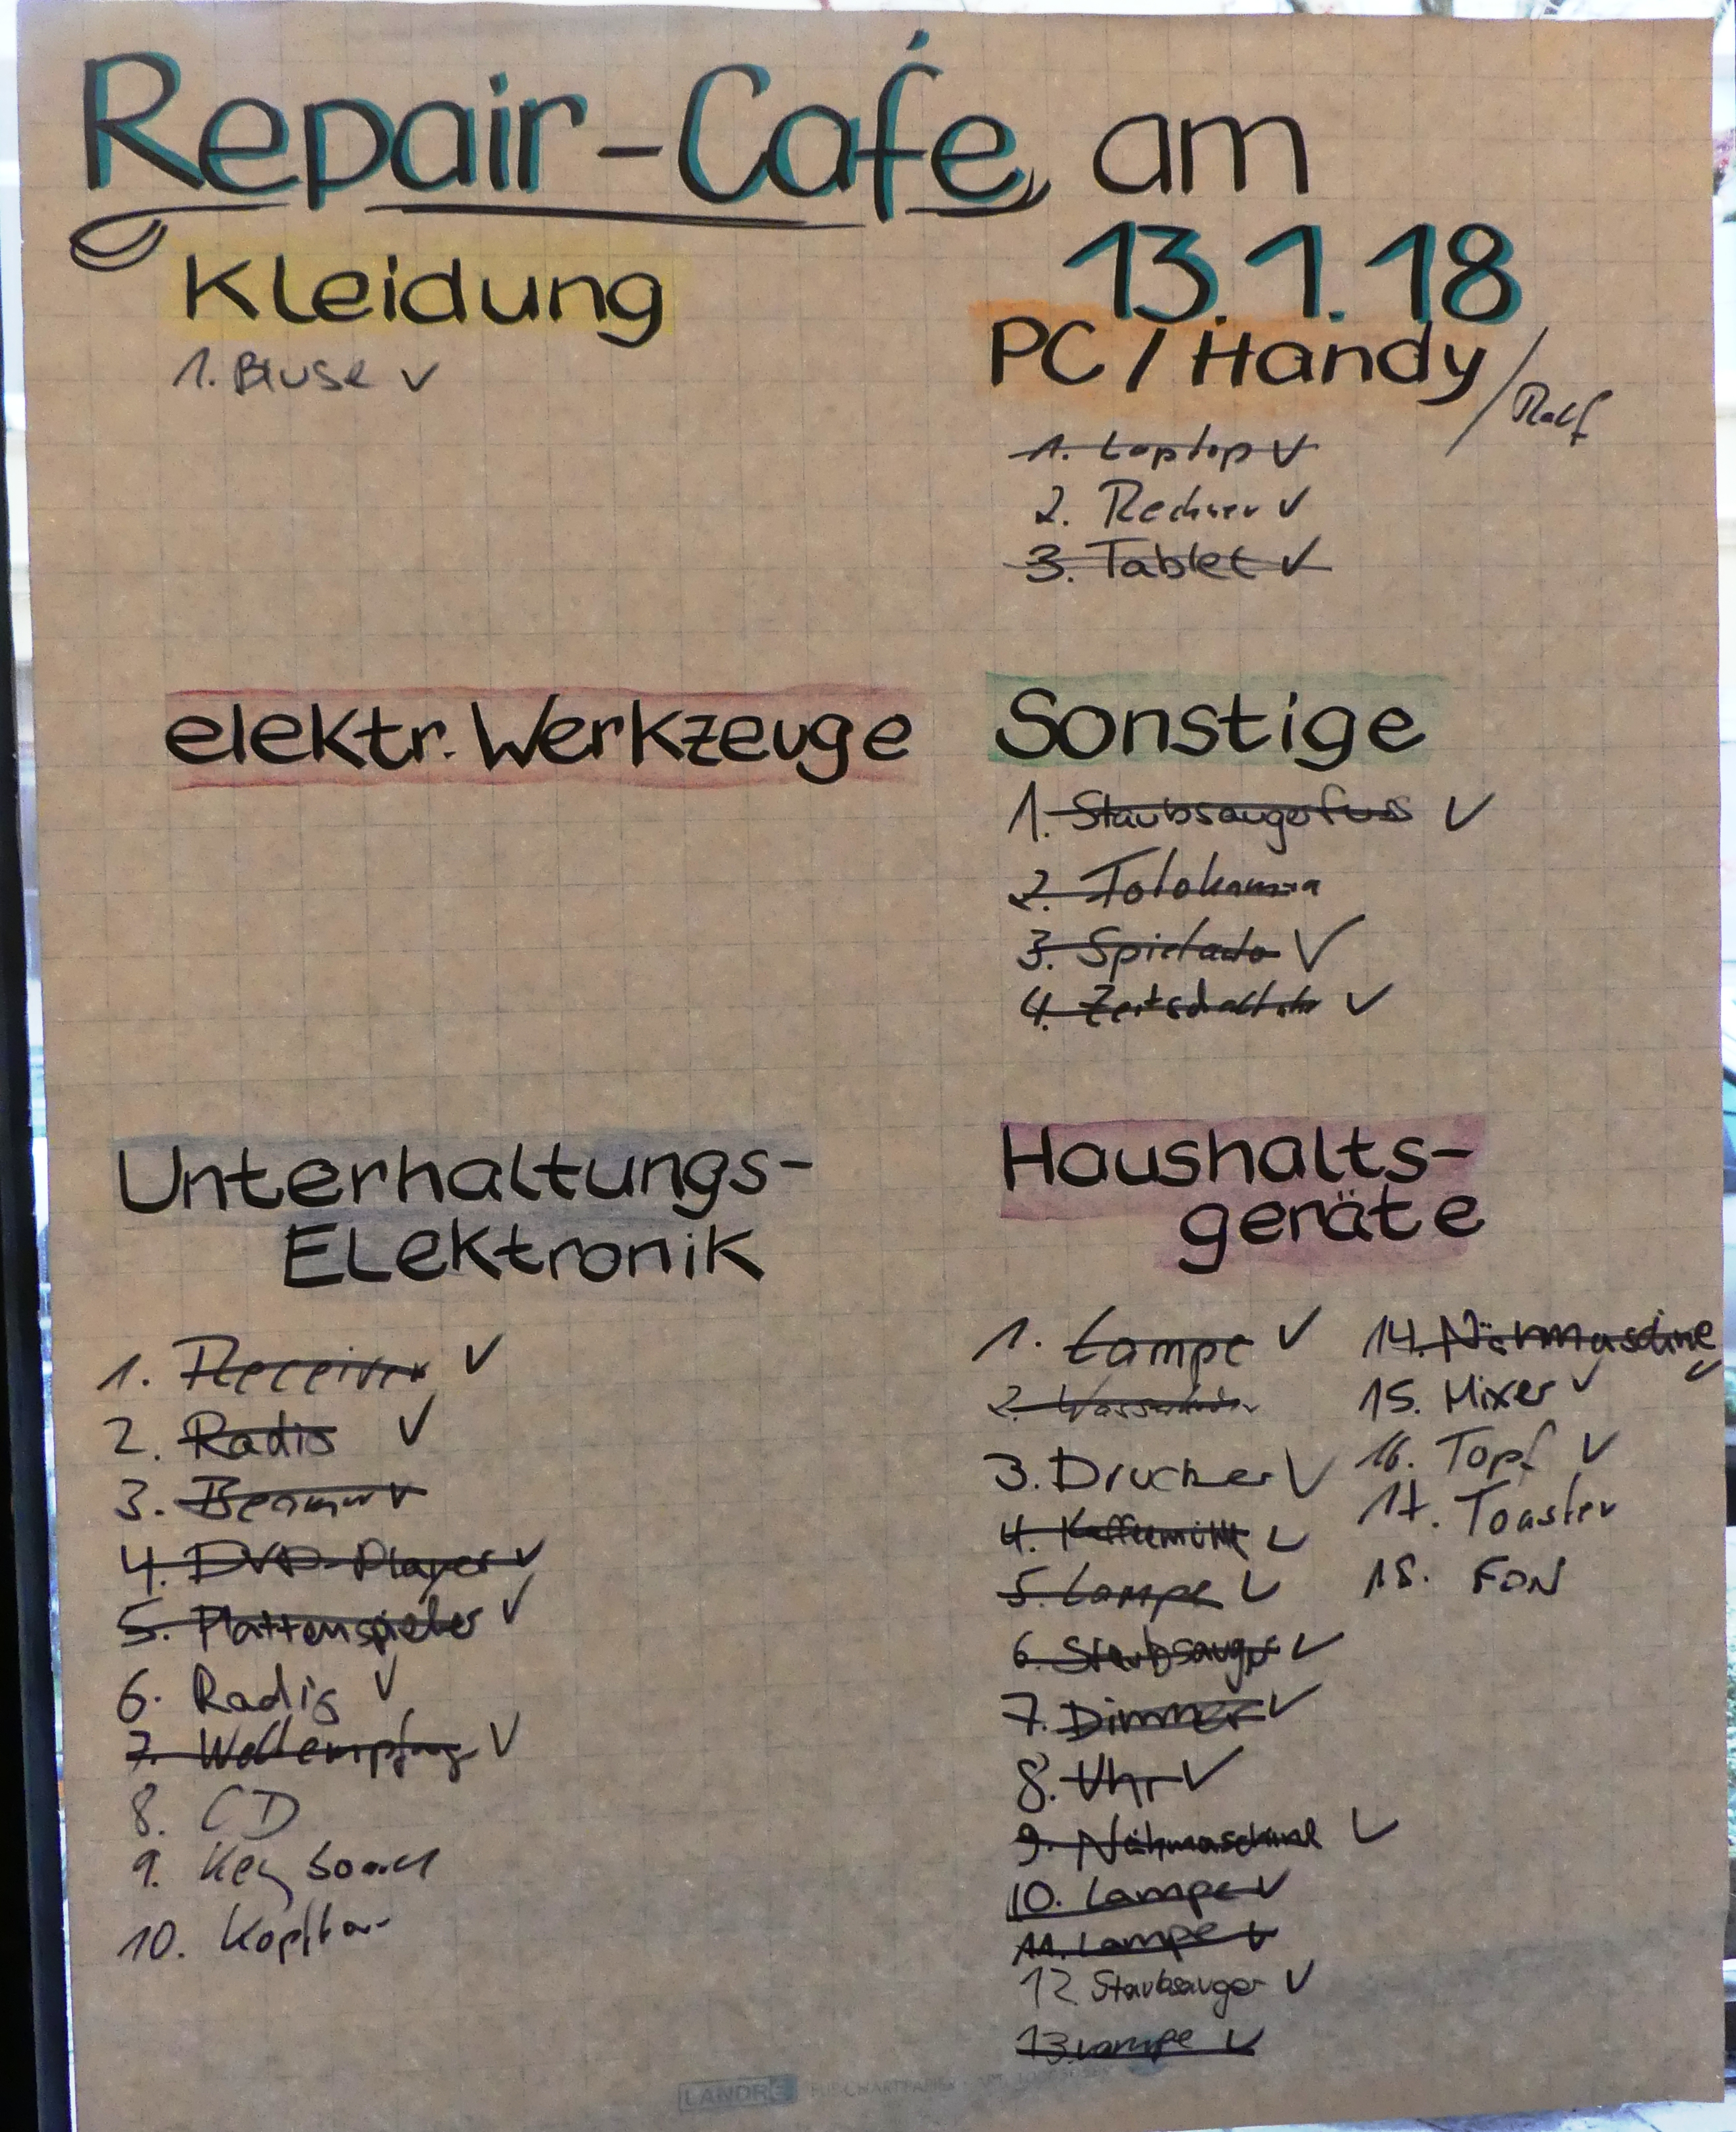 Repair-Café am
13.1.18
Kleidung
1. Bluse ✓
PC / Handy / Ralf
1. Laptop ✓
2. Rechner ✓
3. Tablet ✓
elektr. Werkzeuge
Sonstige
1. Staubsaugerfuß ✓
2. Fotokamera
3. Spielauto ✓
4. Zeitschaltuhr ✓
Unterhaltungs-
Elektronik
1. Receiver ✓
2. Radio ✓
3. Beamer
4. DVD-Player ✓
5. Plattenspieler ✓
6. Radio ✓
7. Weltempfang ✓
8. CD
9. Keyboard
10.
Haushalts-
geräte
1. Lampe ✓
2.
3. Drucker ✓
4. Kaffeemühle ✓
5. Lampe ✓
6. Staubsauger ✓
7. Dimmer ✓
8. Uhr ✓
9. Nähmaschine ✓
10. Lampe ✓
11. Lampe ✓
12 Staubsauger ✓
13. Lampe ✓
14. Nähmaschine ✓
15. Mixer ✓
16. Topf ✓
17. Toaster
18. FÖN
LANDRÉ